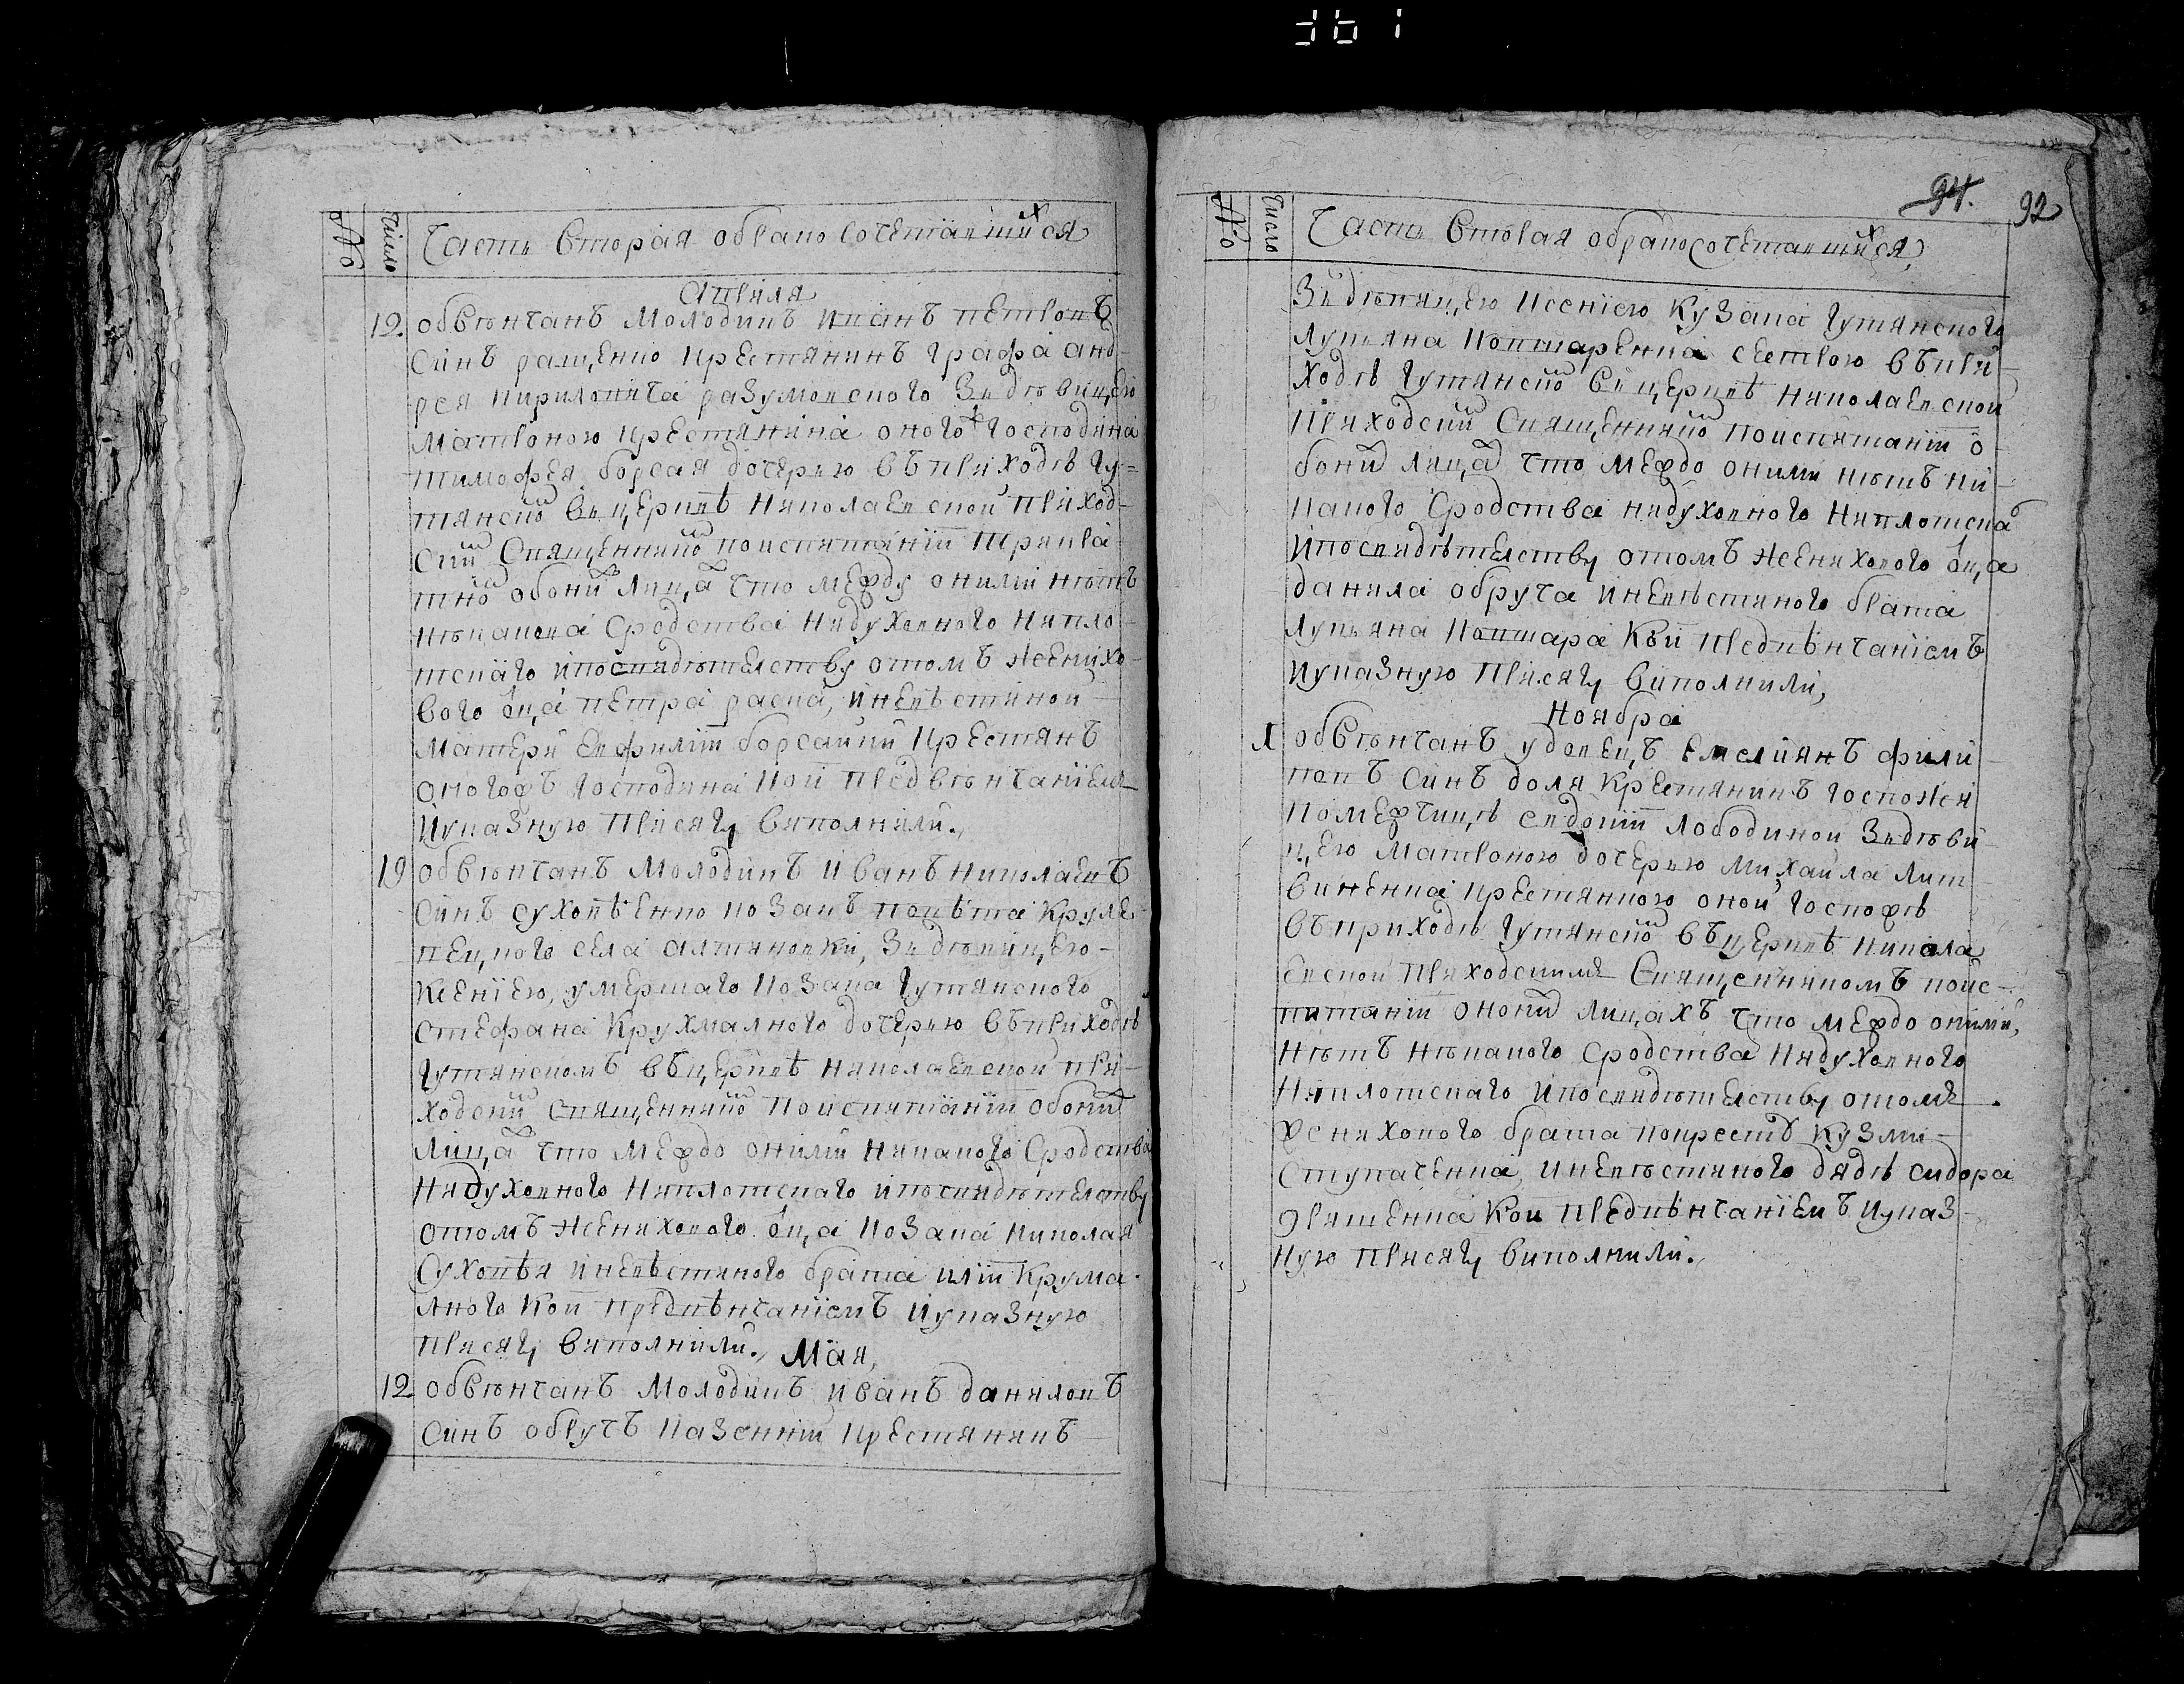 №
Число
Часть Вторая обрано Сочетавшихся
Апреля
12 обвѣнчанъ Молодикъ Иванъ петровъ
Синъ ращенко крестянинъ графа анд-
рея кирилович разумовского Зъ дѣвицею
Матроною крестянина оногож господина
тимофея борсая дочерью въ приходѣ Гу-
тянском въ церквѣ николаевской приход-
ским Священником по испитании троекра-
тном обоих лицах что между оними нѣтъ
нѣкакова Сродства ни духовного ни пло-
тского и посвидѣтелству отомъ женихо-
вого оца петра раска, и невѣстиной
Матери Евфимии борсайки крестянъ
оногожъ господина кои предвѣнчанием
и указную присягу виполнили.
19 обвѣнчанъ Молодикъ иванъ николаевъ
Синъ сухопѣенко козакъ повѣта Круле-
вецкого села алтиновки, Зъ дѣвицею
Ксениею, умершаго козака гутянского
стефана Крухмалного дочерью въ приходѣ
гутянскомъ въ церквѣ николаевской при-
ходским Священником по испитании обоих
лицах что мефдо оними никакого Сродства
ни духовного ни плотского и посвидѣтелству
отомъ жениховаго оца козака николая
Сухопѣя и невѣстиного брата илии Крума-
лного кои предвѣнчаниемъ и указную
присягу виполнили. Мая,
12 обвѣнчанъ Молодикъ иванъ даниловъ
Синъ обручъ казенний крестянинъ
94. 92
№
Число
Часть Вторая обрано Сочетавшихся
Зъ дѣвицею ксениею Кузака гутянского
лукяна Коптаренка сестрою въ при-
ходѣ гутянском въ церквѣ николаевской
приходским Священником по испитании о-
боих лицах что мефдо оними нѣтъ ни-
какого Сродства ни духовного ни плотскаго
и посвидѣтелству отомъ жениховаго оца
данила обруча и невѣстиного брата
лукяна Коптара Кои предвѣнчаниемъ
и указную присягу виполнили,
Ноября
обвѣнчанъ удовецъ Емелиянъ фили-
повъ синъ доля Крестянинъ госпожи
помефчицѣ Евдокии лободиной Зъ дѣви-
цею матроною дочерью михайла лит-
виненка крестянкою оной госпожѣ
въ приходѣ гутянском въ церквѣ никола-
евской приходским Священникомъ по ис-
питании оноих лицахъ что мефдо оними,
нѣтъ нѣкакого сродства ни духовного
ни плотскаго и посвидѣтелству отом
жениховаго брата по крестѣ Кузми
Ступаченка, и невѣстиного дядѣ сидора
Кои предвѣнчаниемъ и указ-
ную присягу виполнили.